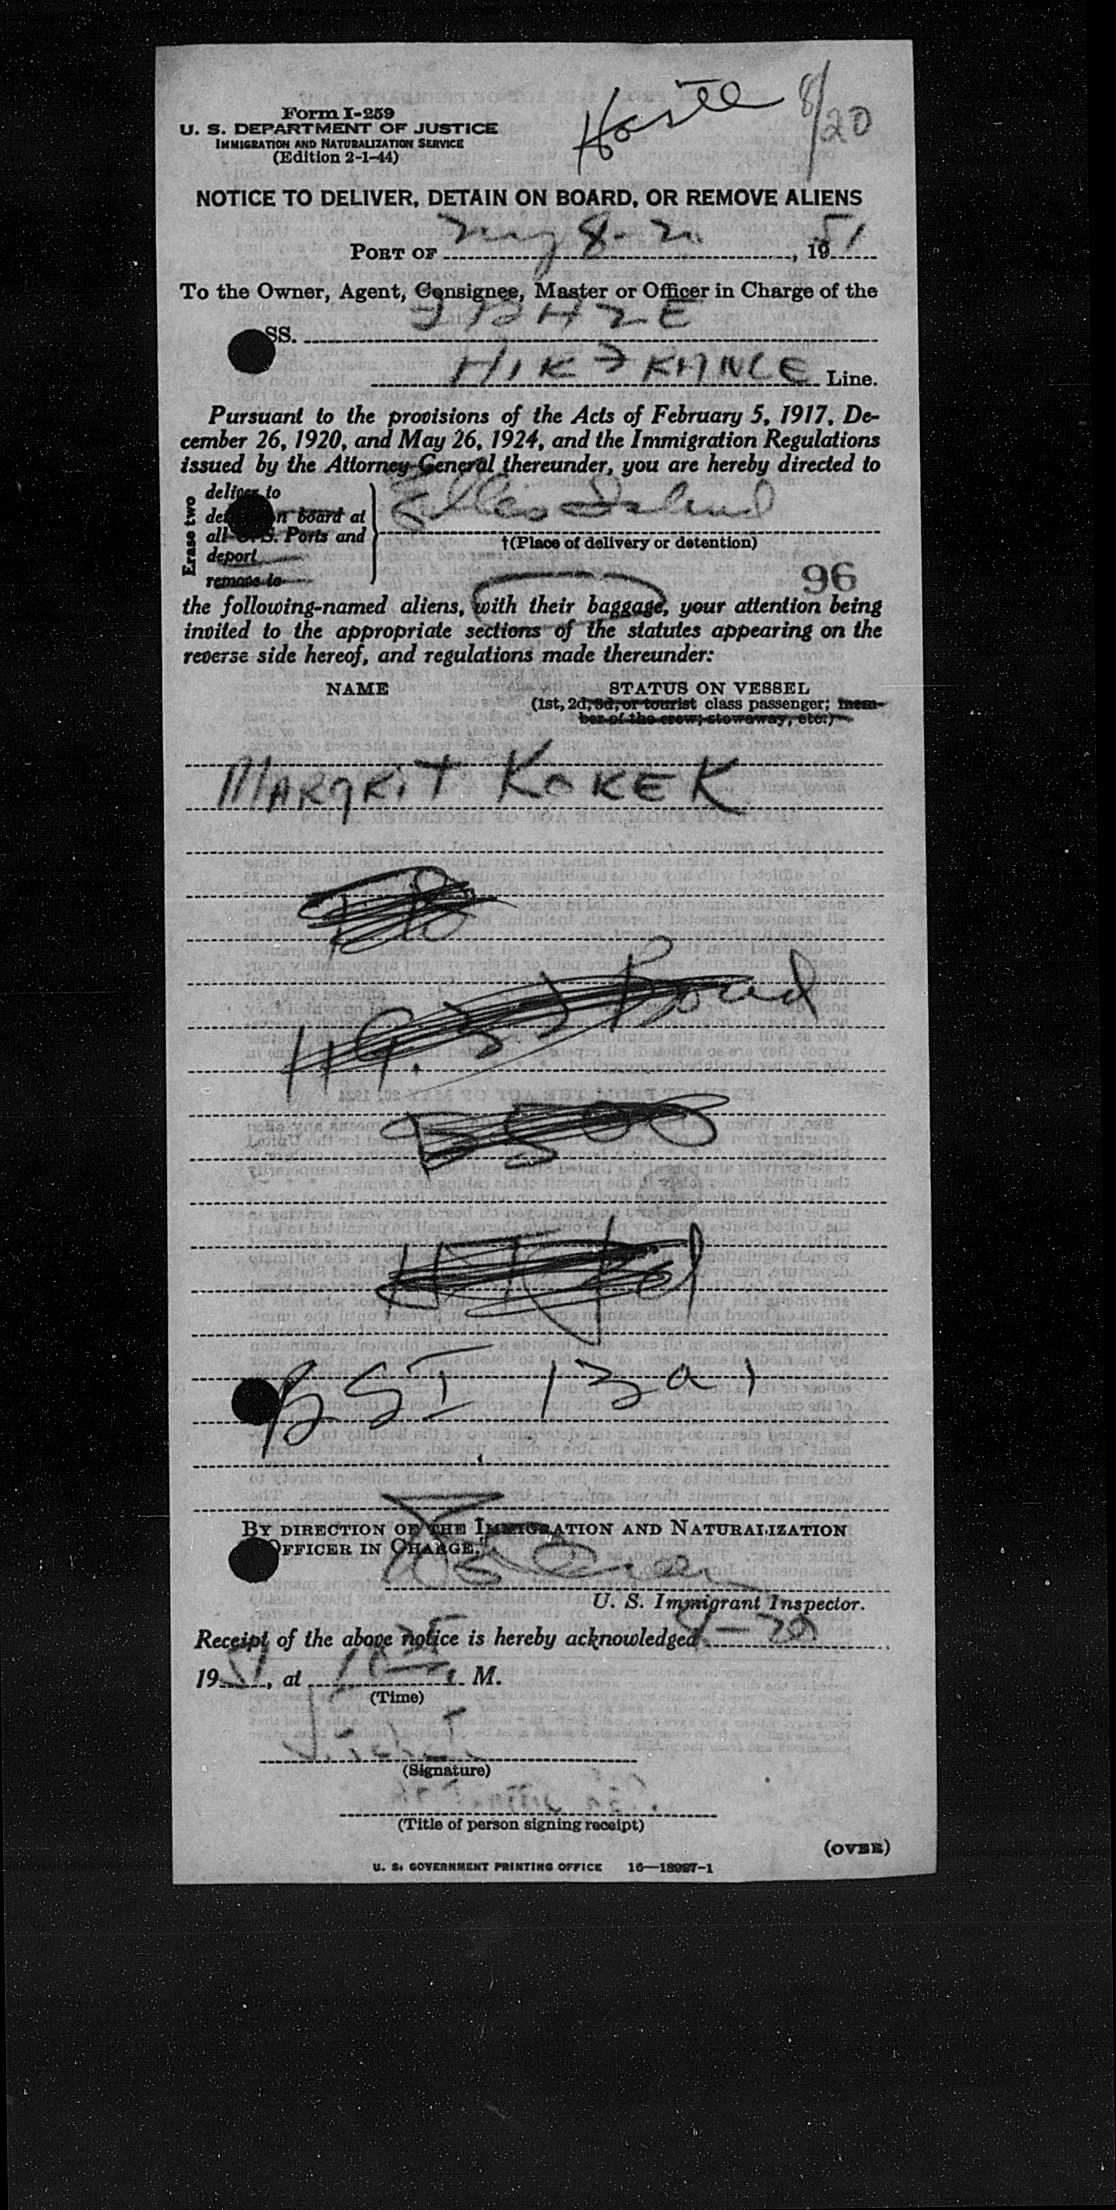 Form I-259
U. S. DEPARTMENT OF JUSTICE
IMMIGRATION AND NATURALIZATION SERVICE
(Edition 2-1-44)
8/20
NOTICE TO DELIVER, DETAIN ON BOARD, OR REMOVE ALIENS
PORT OF 8-20, 1951
To the Owner, Agent, Consignee, Master or Officer in Charge of the
SS.
AIR FRANCE Line.
Pursuant to the provisions of the Acts of February 5, 1917, De-
cember 26, 1920, and May 26, 1924, and the Immigration Regulations
issued by the Attorney General thereunder, you are hereby directed to
Erase two
deliver to
on board at
all U. S. Ports and
deport
remove to
Ellis Island
†(Place of delivery or detention)
96
the following-named aliens, with their baggage, your attention being
invited to the appropriate sections of the statutes appearing on the
reverse side hereof, and regulations made thereunder:
NAME STATUS ON VESSEL
(1st, 2d, 3d, or tourist class passenger; mem-
ber of the crew; stowaway, etc.)
MARGRIT KOKEK
Board
B S I
BY DIRECTION OF THE IMMIGRATION AND NATURALIZATION
OFFICER IN CHARGE,
U. S. Immigrant Inspector.
Receipt of the above notice is hereby acknowledged 8-20
1951, at M.
(Time)
(Signature)
(Title of person signing receipt)
(OVER)
U. S. GOVERNMENT PRINTING OFFICE 16—18987-1